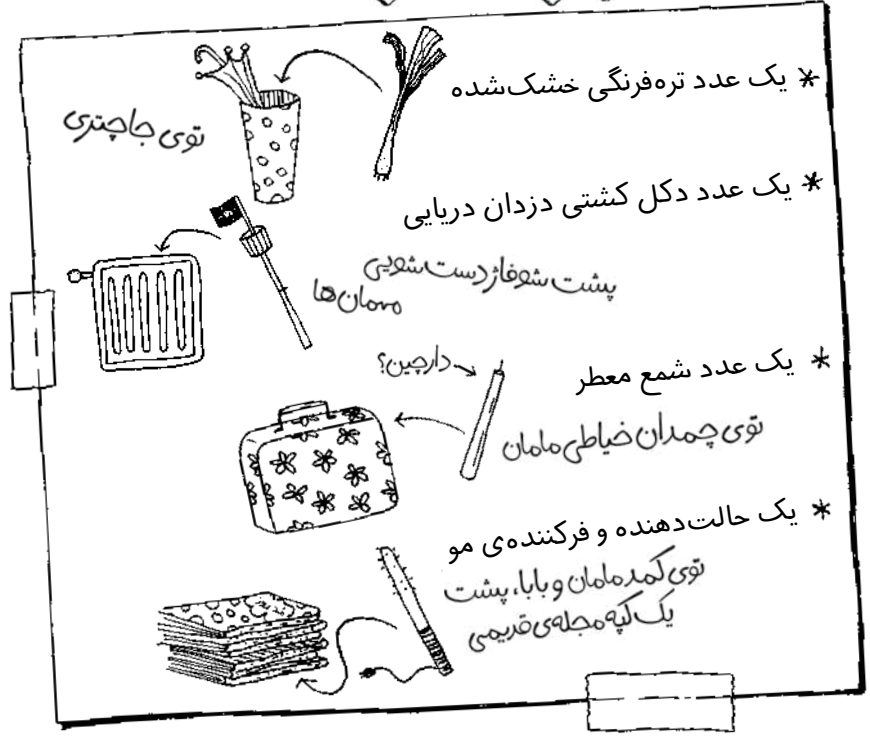 * یک عدد تره‌فرنگی خشک‌شده
توی جاچتری
* یک عدد دکل کشتی دزدان دریایی
پشت شوفاژ دست‌شویی
مهمان‌ها
* یک عدد شمع معطر
دارچین؟
توی چمدان خیاطی مامان
* یک حالت‌دهنده و فرکننده‌ی مو
توی کمد مامان و بابا، پشت
یک کپه مجله‌ی قدیمی